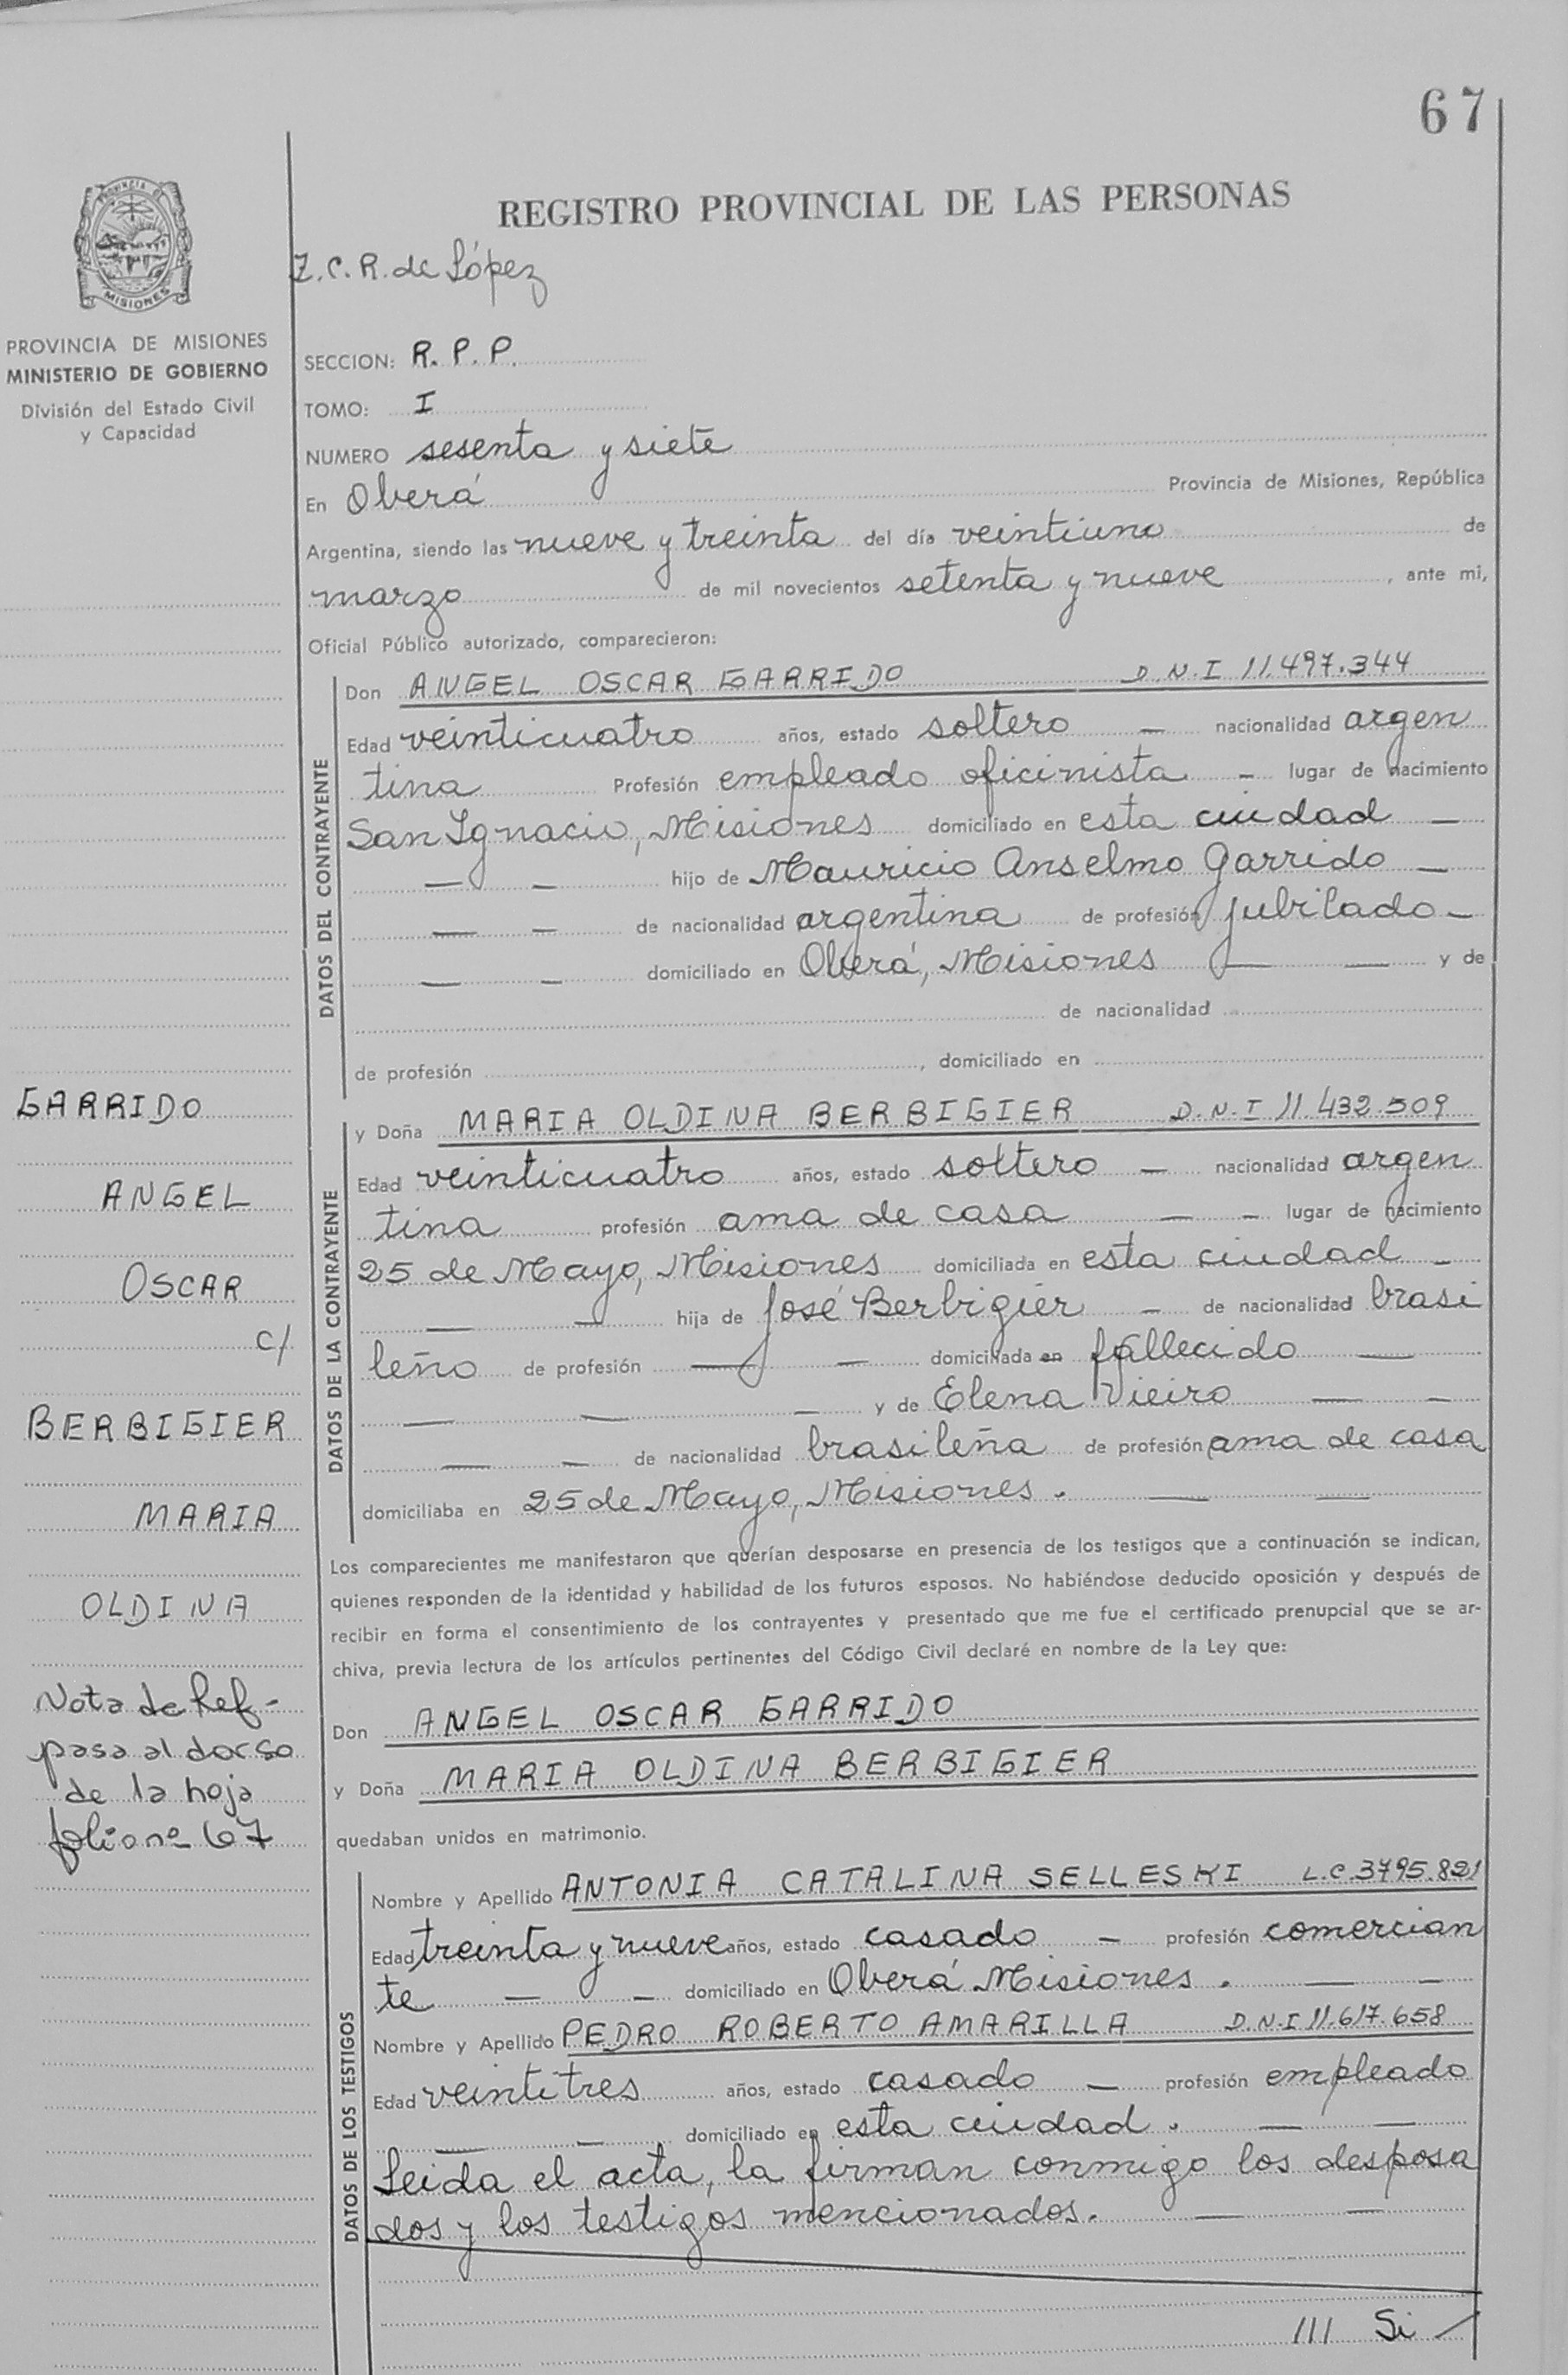 67
PROVINCIA DE
MISIONES
PROVINCIA DE MISIONES
MINISTERIO DE GOBIERNO
División del Estado Civil
y Capacidad
REGISTRO PROVINCIAL DE LAS PERSONAS
Z.C.R. de López
SECCION: R. P. P.
TOMO: I
NUMERO sesenta y siete
En Oberá Provincia de Misiones, República
Argentina, siendo las nueve y treinta del día veintiuno de
marzo de mil novecientos setenta y nueve, ante mi,
Oficial Público autorizado, comparecieron:
DATOS DEL CONTRAYENTE
Don ANGEL OSCAR GARRIDO D.N.I 11.497.344
Edad veinticuatro años, estado soltero — nacionalidad argen
tina Profesión empleado oficinista — lugar de nacimiento
San Ignacio, Misiones domiciliado en esta ciudad —
— — hijo de Mauricio Anselmo Garrido —
— — de nacionalidad argentina de profesión jubilado —
— — domiciliado en Oberá, Misiones — — y de
de nacionalidad
de profesión , domiciliado en
DATOS DE LA CONTRAYENTE
y Doña MARIA OLDINA BERBIGIER D.N.I 11.432.509
Edad veinticuatro años, estado soltero — nacionalidad argen
tina profesión ama de casa — — lugar de nacimiento
25 de Mayo, Misiones domiciliada en esta ciudad —
— — hija de José Berbigier — de nacionalidad brasi
leño de profesión — — domiciliada en fallecido —
— — — y de Elena Vieiro — —
— — de nacionalidad brasileña de profesión ama de casa
domiciliaba en 25 de Mayo, Misiones. — —
Los comparecientes me manifestaron que querían desposarse en presencia de los testigos que a continuación se indican,
quienes responden de la identidad y habilidad de los futuros esposos. No habiéndose deducido oposición y después de
recibir en forma el consentimiento de los contrayentes y presentado que me fue el certificado prenupcial que se ar-
chiva, previa lectura de los artículos pertinentes del Código Civil declaré en nombre de la Ley que:
Don ANGEL OSCAR GARRIDO
y Doña MARIA OLDINA BERBIGIER
quedaban unidos en matrimonio.
DATOS DE LOS TESTIGOS
Nombre y Apellido ANTONIA CATALINA SELLESKI L.C.3795.821
Edad treinta y nueve años, estado casado — profesión comercian
te — — domiciliado en Oberá Misiones. — —
Nombre y Apellido PEDRO ROBERTO AMARILLA D.N.I 11.617.658
Edad veintitres años, estado casado — profesión empleado
— — domiciliado en esta ciudad. — —
Leida el acta, la firman conmigo los desposa
dos y los testigos mencionados. — —
/// Si
GARRIDO
ANGEL
OSCAR
c/
BERBIGIER
MARIA
OLDINA
Nota de Ref-
pasa al dorso
de la hoja
folio nº 67